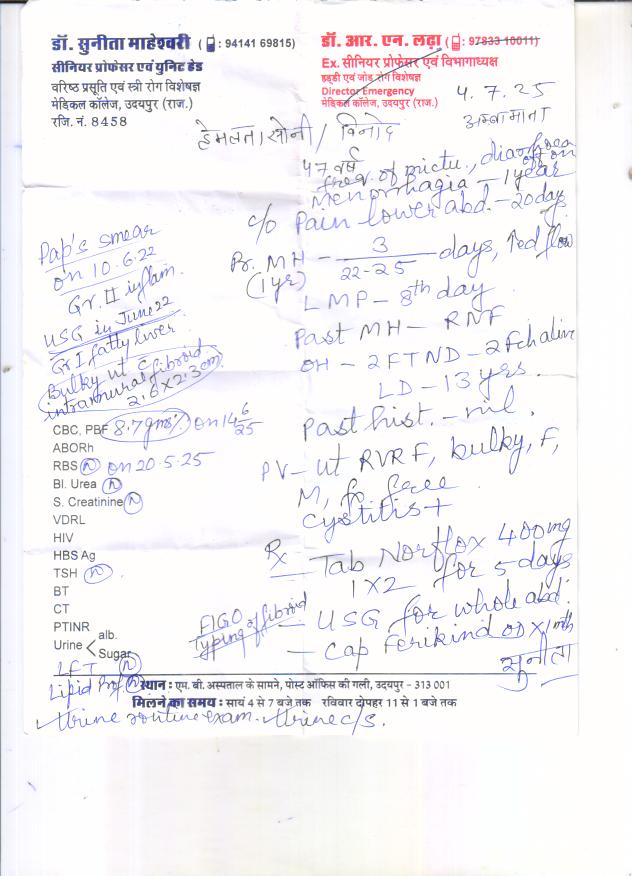 डॉ. सुनीता माहेश्वरी ( : 94141 69815)
सीनियर प्रोफेसर एवं युनिट हेड
वरिष्ठ प्रसूति एवं स्त्री रोग विशेषज्ञ
मेडिकल कॉलेज, उदयपुर (राज.)
रजि. नं. 8458
डॉ. आर. एन. लढ़ा ( : 97833 10011)
Ex. सीनियर प्रोफेसर एवं विभागाध्यक्ष
हड्डी एवं जोड़ रोग विशेषज्ञ
Director Emergency
मेडिकल कॉलेज, उदयपुर (राज.)
4.7.25
अम्बामाता
हेमलता सोनी / विनोद
47 वर्ष
freq. of mictu., diarrhoea off on
Menorrhagia - 1 year
c/o Pain lower abd. - 20 days
Pr. MH - 3/22-25 days, ↑ed flow
(1 yr)
LMP - 8th day
Past MH - RNF
OH - 2 FTND - 2 F ch alive
LD - 13 yrs.
Past hist. - nil.
PV - ut RVRF, bulky, F,
M, fx free
Cystitis +
Rx - Tab Norflox 400mg
1 X 2 for 5 days
- USG for whole abd.
FIGO
Typing of fibroid
- Cap Ferikind OD X 1 mth
सुनीता
Pap's smear
on 10.6.22
Gr. II inflam.
USG in June 22
Gr I fatty liver
Bulky ut c fibroid
intramural fibroid
2.6 X 2.3 cm
CBC, PBF 8.7 gms% on 14/6/25
ABORh
RBS N on 20.5.25
Bl. Urea N
S. Creatinine N
VDRL
HIV
HBS Ag
TSH N
BT
CT
PTINR
Urine < alb.
Sugar
LFT N
Lipid Prof. N
स्थान : एम. बी. अस्पताल के सामने, पोस्ट ऑफिस की गली, उदयपुर - 313 001
मिलने का समय : सायं 4 से 7 बजे तक रविवार दोपहर 11 से 1 बजे तक
Urine routine exam. Urine c/s.